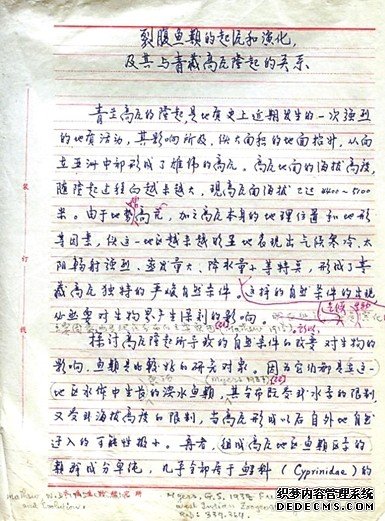 裂腹鱼类的起源和演化,
及其与青藏高原隆起的关系
青藏高原的隆起是地质史上近期发生的一次强烈
的地质活动,其影响所及,使大面积的地面抬升,从而
在亚洲中部形成了雄伟的高原。高原地面的海拔高度,
随隆起过程向越来越大,现高原面海拔已达4400-5000
米。由于地势高亢,加之高原本身的地理位置和地形
等因素,使这一地区越来越明显地表现出气候寒冷、太
阳辐射强烈、蒸发量大、降水量小等特点,形成了青
藏高原独特的严峻自然条件。这样的自然条件的出现
必然要对生物界产生深刻的影响。
探讨高原隆起所导致的自然条件的改变对生物的
影响,鱼类是较好的研究对象。因为它们都是在这一
(Myers 1938)
地区水体中生长的淡水鱼类,其分布既受到水系的限制
又受到海拔高度的限制,当高原形成以后自外地自然
进入的可能性极小。再者,组成高原地区鱼类区系的
类群成分单纯,几乎全部属于鲤科(Cyprinidae)的
Matthew, W.D.
and Evolution.
Myers, G.S. 1938
West Indian Zoogeog
339-364.
装
订
线
组织部内容管理系统
www.zuzhirenshi.com